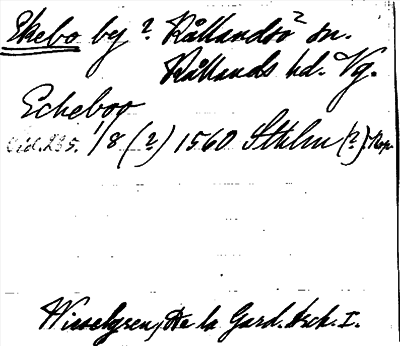 Ekebo by? Kållandsö² sn.
Kållands hd. Vg.
Echeboo
s. 235. 1/8 (?) 1560 Sthlm (?). Kop.
Wieselgren, De la Gard. Arch. I.